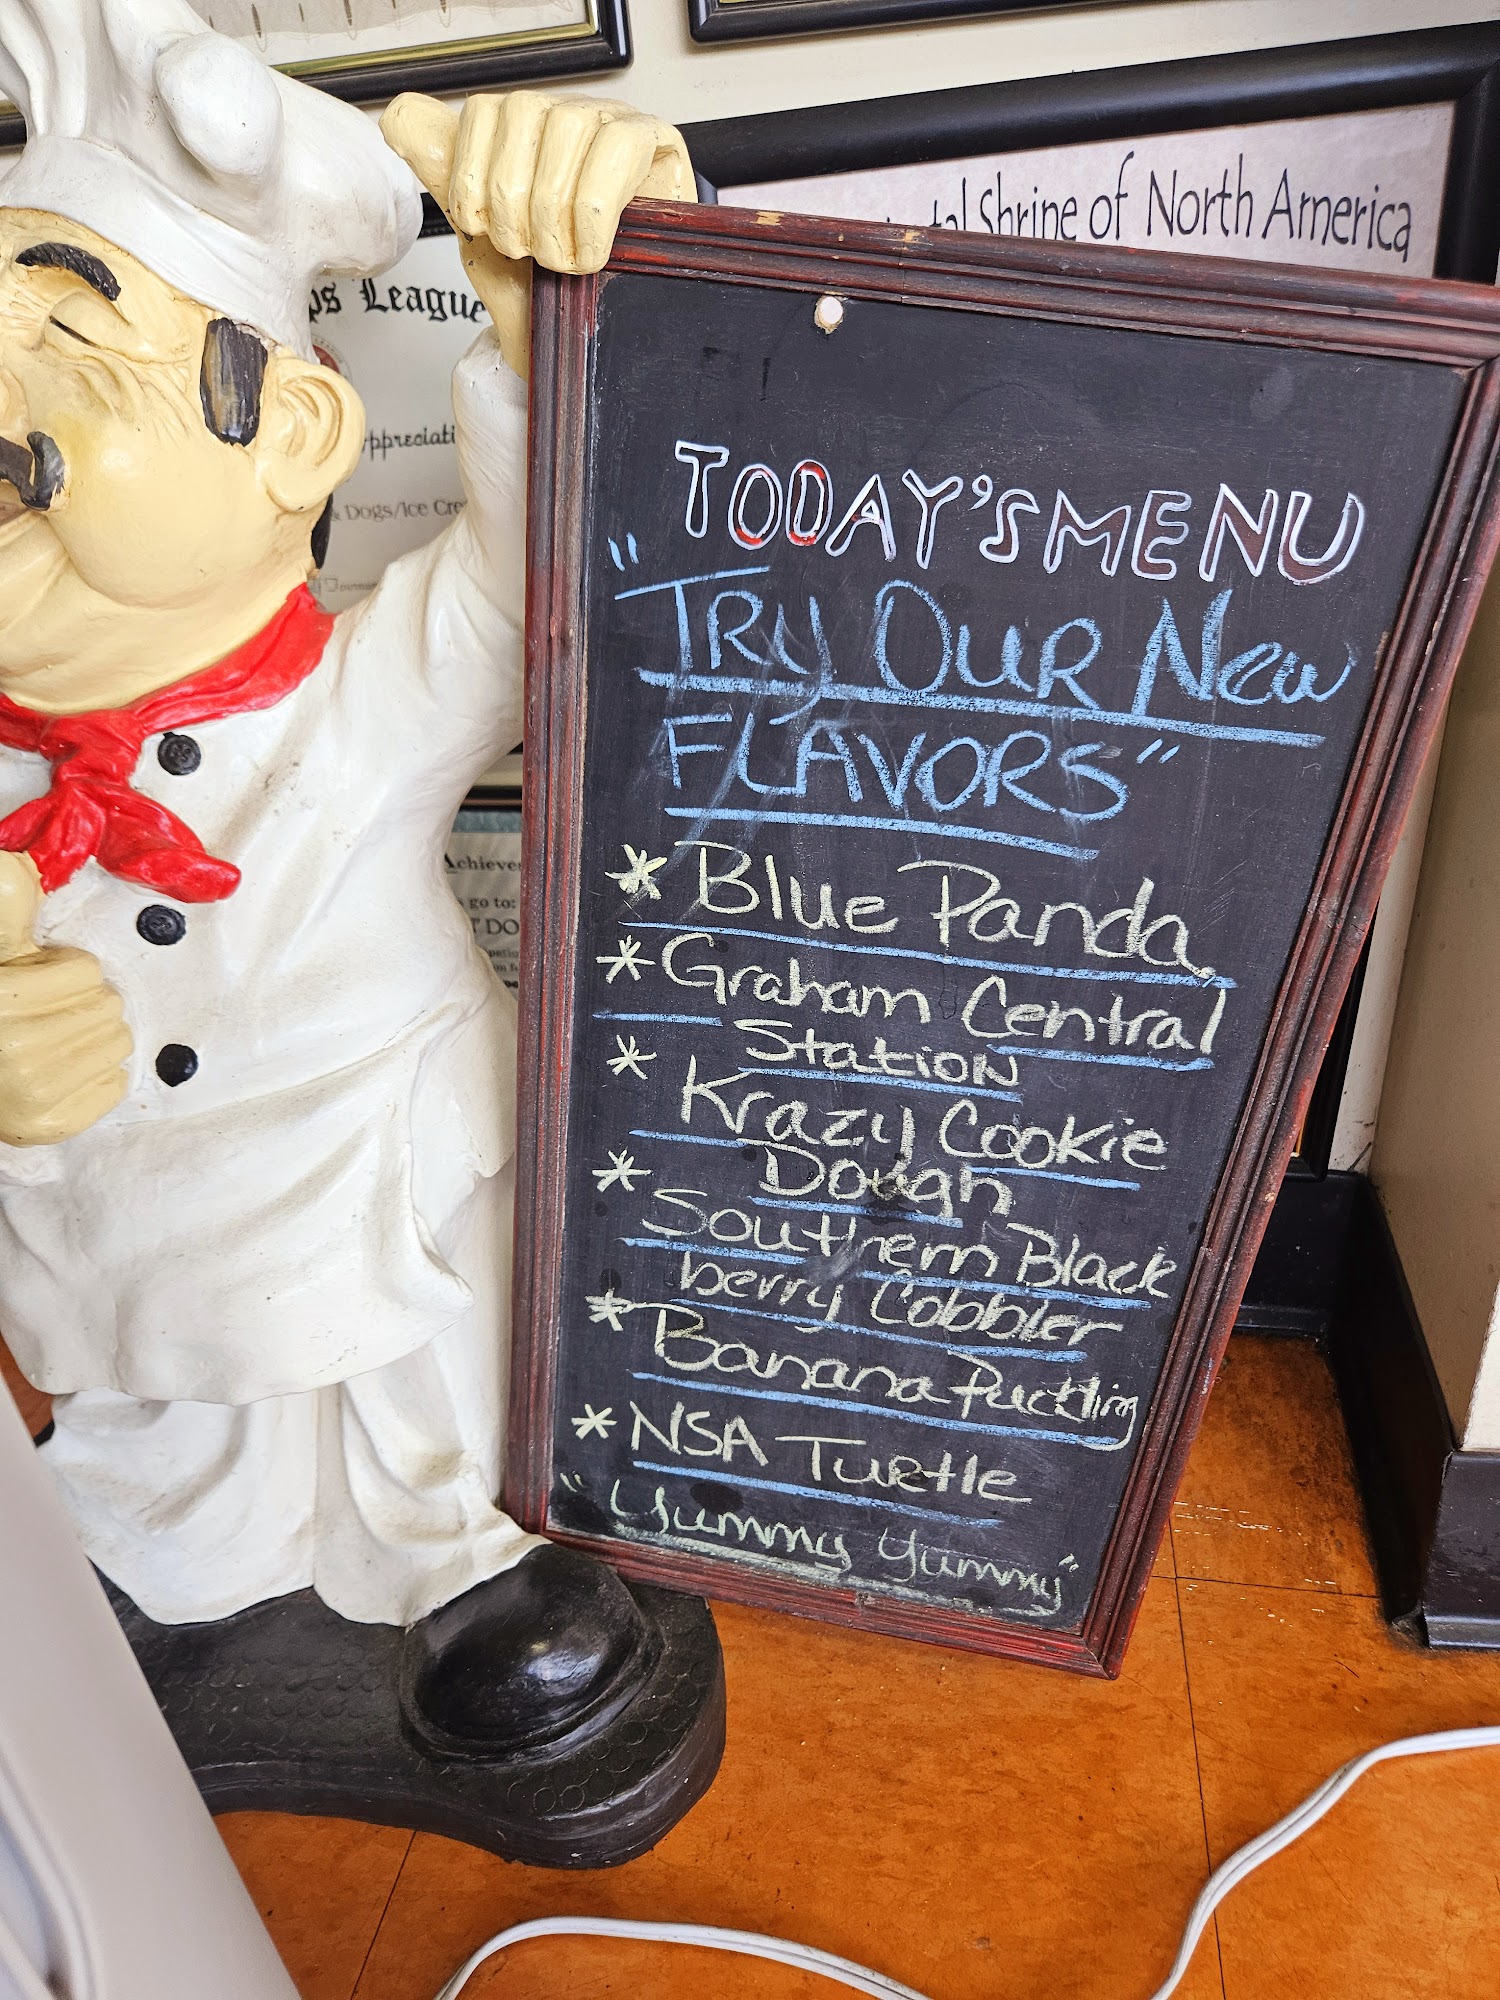 Shrine of North America
League
& Dogs/Ice
TODAY'S MENU
"TRY OUR New
FLAVORS"
* Blue Panda
* Graham Central
Station
* Krazy Cookie
Dough
* Southern Black
berry Cobbler
* Banana Pudding
* NSA Turtle
"Yummy Yummy"
go to: